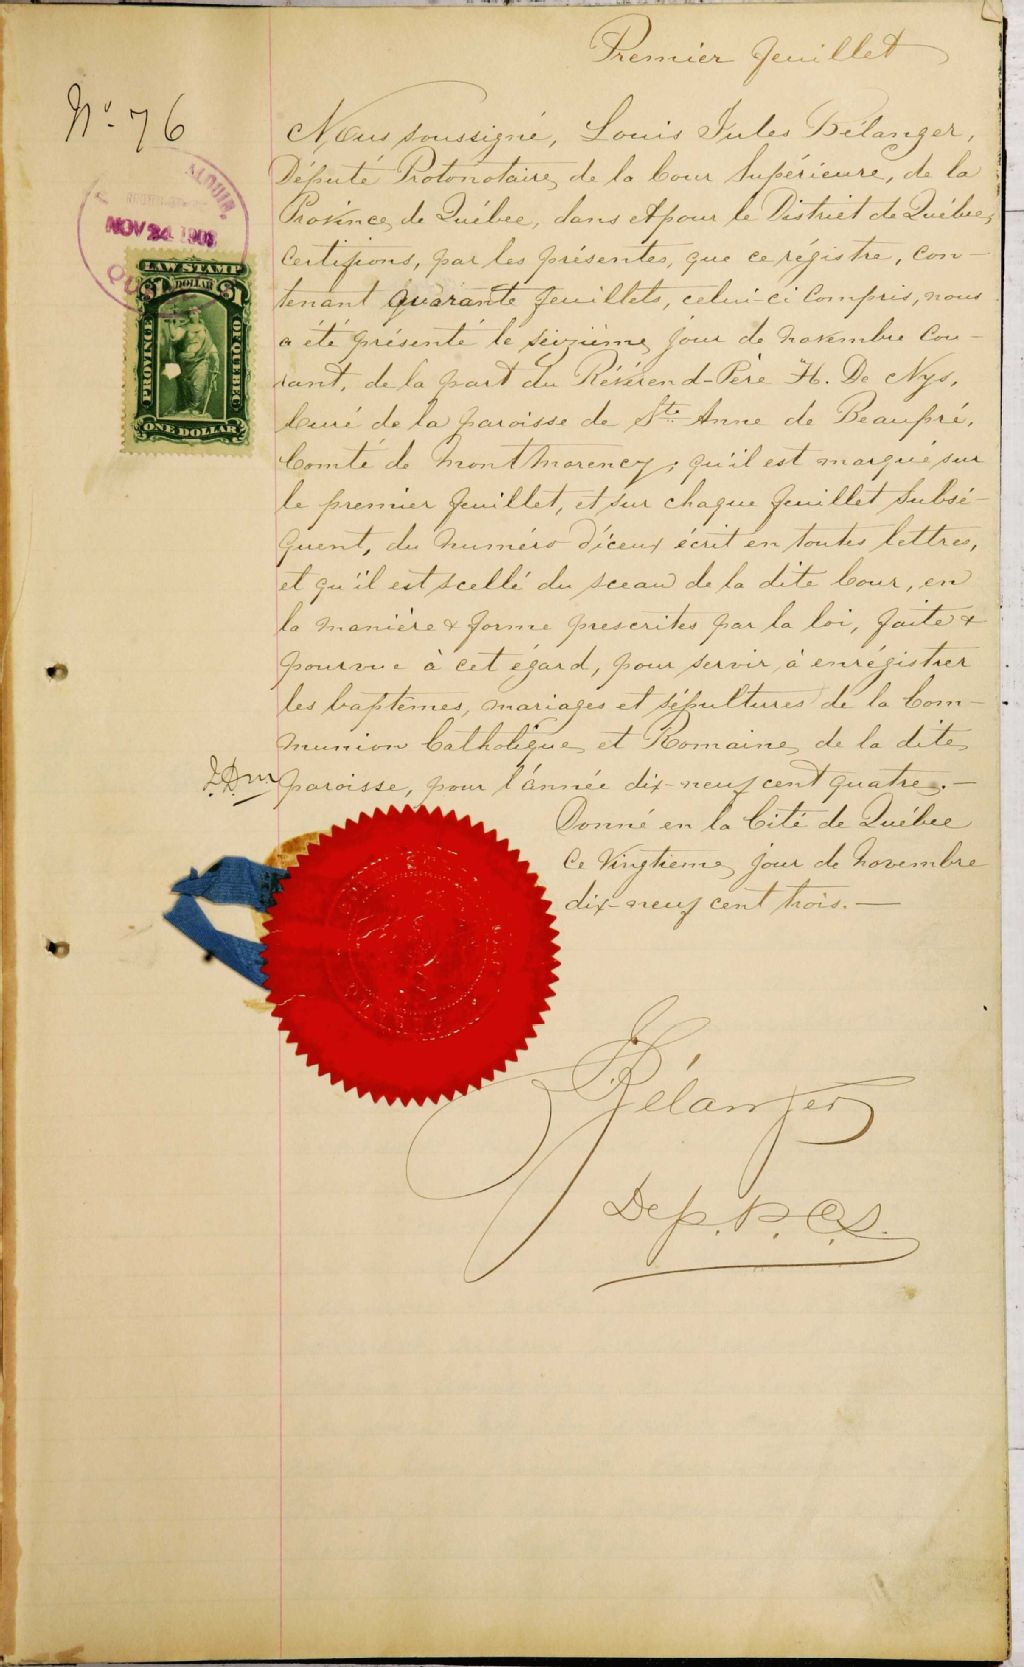 Premier feuillet
No. 76
Nous soussigné, Louis Jules Bélanger,
Député Protonotaire, de la Cour Supérieure, de la
Province, de Québec, dans et pour le District de Québec,
certifions, par les présentes, que ce régistre, con-
tenant quarante feuillets, celui-ci compris, nous
a été présenté le seizième, jour de novembre cou-
rant, de la part du Révérend-Père H. De Nys,
Curé de la paroisse de Ste Anne de Beaupré,
Comté de Montmorency; qu'il est marqué sur
le premier feuillet, et sur chaque feuillet subsé-
quent, du numéro d'iceux écrit en toutes lettres,
et qu'il est scellé du sceau de la dite Cour, en
la manière & forme prescrites par la loi, faite &
pourvue à cet égard, pour servir, à enrégistrer
les baptêmes, mariages et sépultures de la Com-
munion Catholique, et Romaine, de la dite,
paroisse, pour l'année dix-neuf cent quatre. —
Donné en la Cité de Québec
ce vingtième, jour de novembre
dix-neuf cent trois. —
NOV 24 190
LAW STAMP
$1 DOLLAR $1
PROVINCE OF QUEBEC
ONE DOLLAR
Bélanger
Dep. P. C. S.